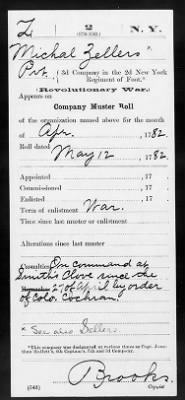 Z
2
N. Y.
Michal Zellers *
Pvt, 3d Company in the 2d New York
Regiment of Foot.*
(Revolutionary War.)
Appears on
Company Muster Roll
of the organization named above for the month
of Apr., 1782.
Roll dated
May 12, 1782.
Appointed, 17
Commissioned, 17
Enlisted, 17
Term of enlistment War.
Time since last muster or enlistment
Alterations since last muster
Casualties On command at
Smiths Clove since the
Remarks 27 of April by order
of Colo. Cochran.
* See also Sellers
*This company was designated at various times as Capt.
and 3d Company.
Brooks.
Copyist.